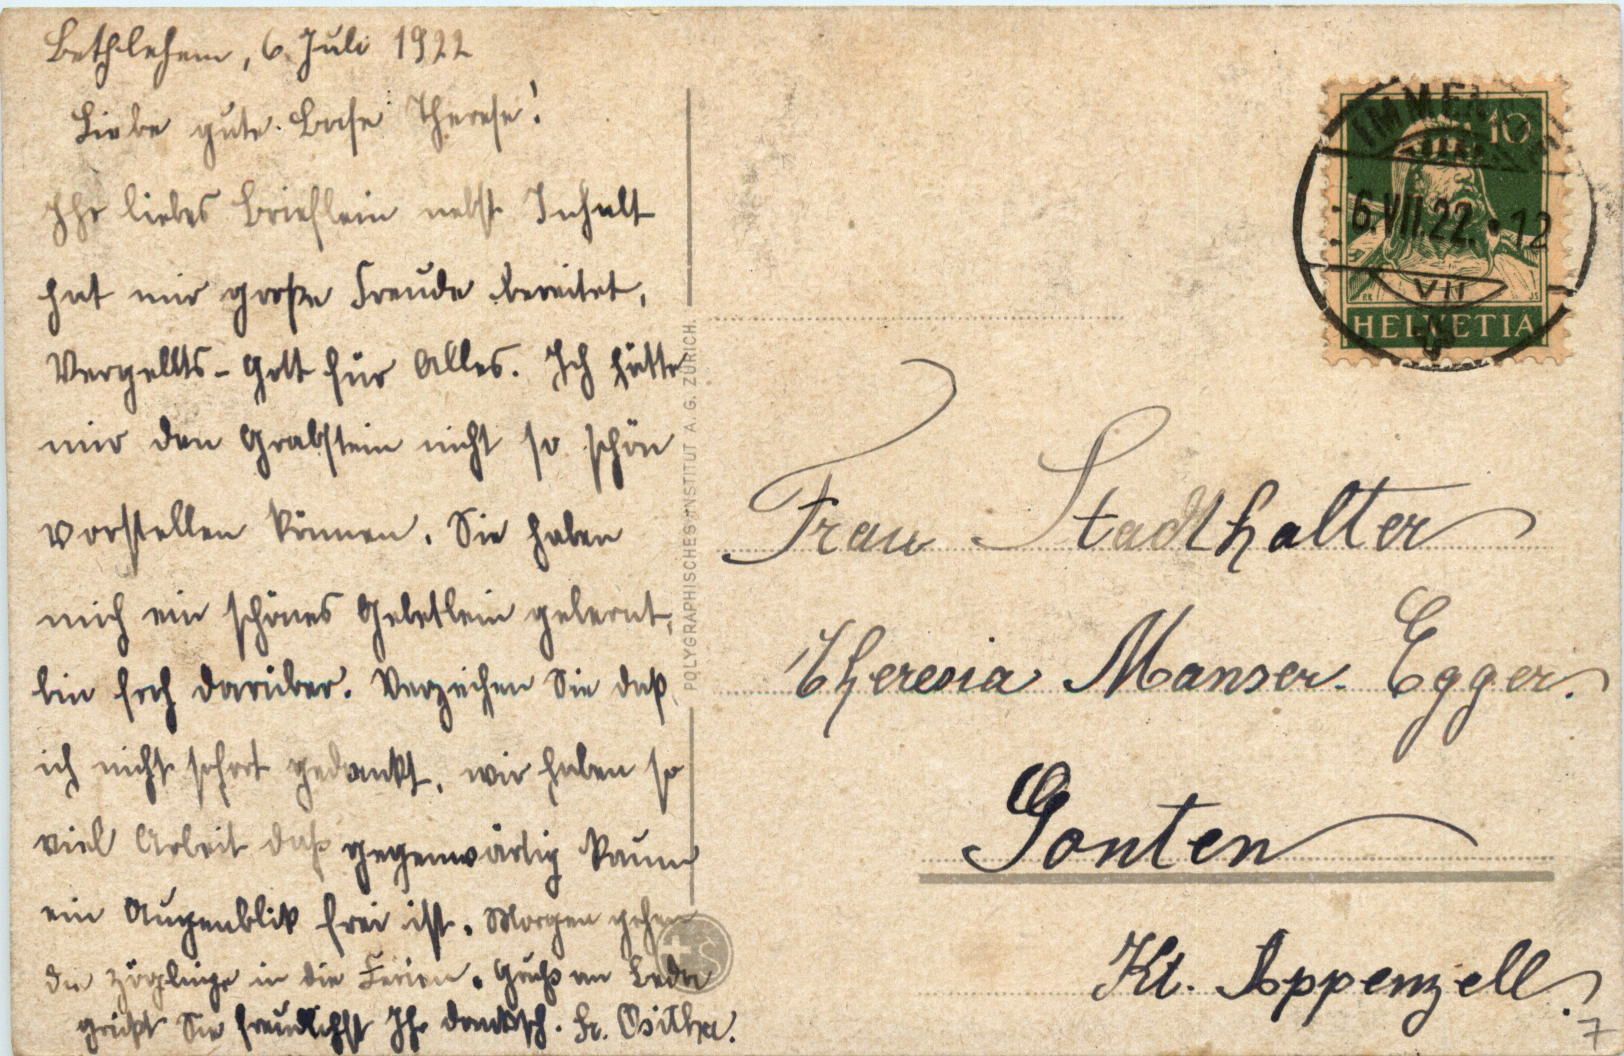 Bethlehem, 6. Juli 1922
Liebe gute Base Therese!
Ihr liebes Brieflein nebst Inhalt
hat mir große Freude bereitet,
Vergellts-Gott für Alles. Ich hätte
mir den Grabstein nicht so schön
vorstellen können. Sie haben
mich ein schönes Gebetlein gelernt,
bin froh darüber. Verzeihen Sie daß
ich nicht sofort gedankt, wir haben so
viel Arbeit daß gegenwärtig kaum
ein Augenblik frei ist. Morgen gehen
die Zöglinge in die Ferien. Gruß an
grüßt Sie freundlichst Ihr danksch. Sr. Ositha.
POLYGRAPHISCHES INSTITUT A. G. ZÜRICH.
IMMENSEE
6.VII.22.•12
VII
10
HELVETIA
Frau Stadthalter
Theresia Manser-Egger.
Gonten
Kt. Appenzell.
7